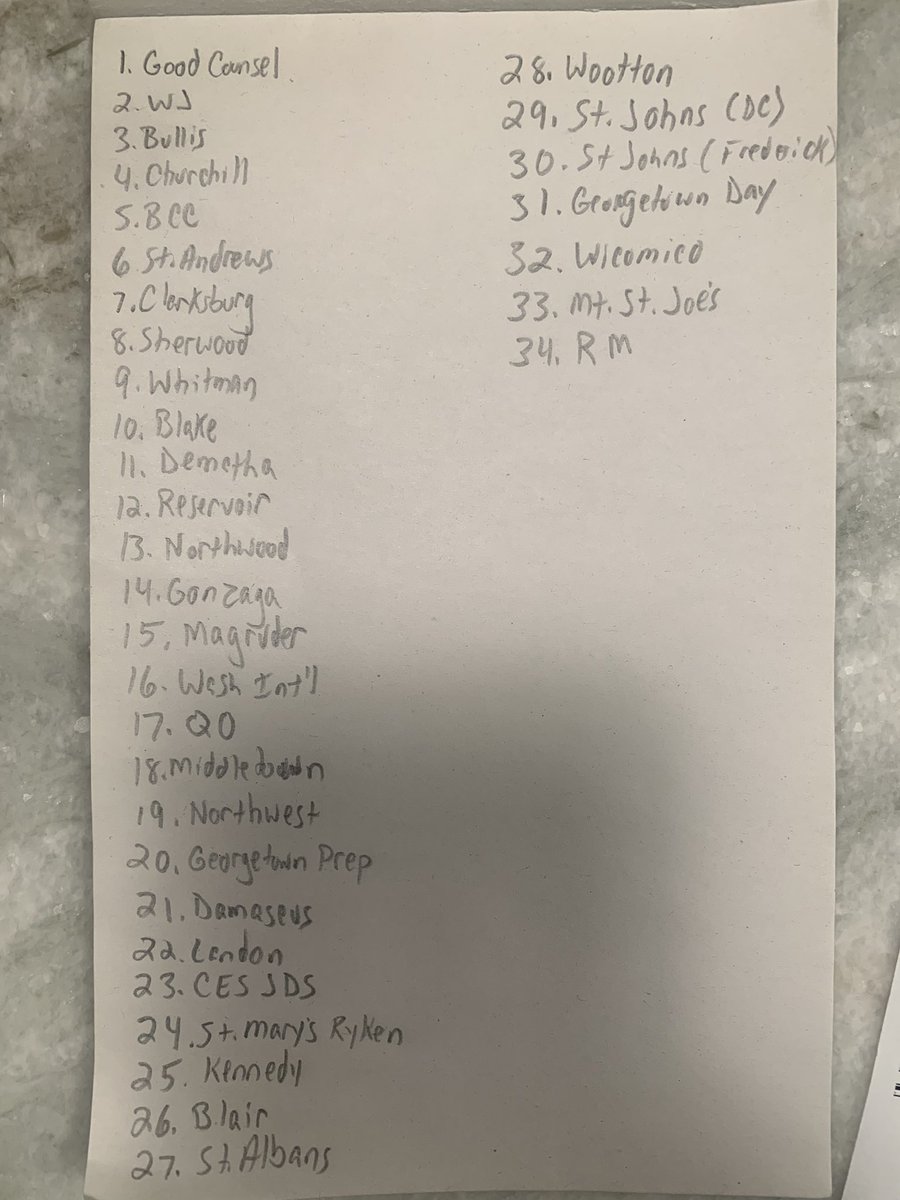 1. Good Counsel
2. WJ
3. Bullis
4. Churchill
5. BCC
6 St. Andrews
7. Clarksburg
8. Sherwood
9. Whitman
10. Blake
11. Dematha
12. Reservoir
13. Northwood
14. Gonzaga
15. Magruder
16. Wash Int'l
17. QO
18. Middletown
19. Northwest
20. Georgetown Prep
21. Damascus
22. Landon
23. CES JDS
24. St. Mary's Ryken
25. Kennedy
26. Blair
27. St. Albans
28. Wootton
29. St. Johns (DC)
30. St Johns (Frederick)
31. Georgetown Day
32. Wicomico
33. Mt. St. Joe's
34. RM